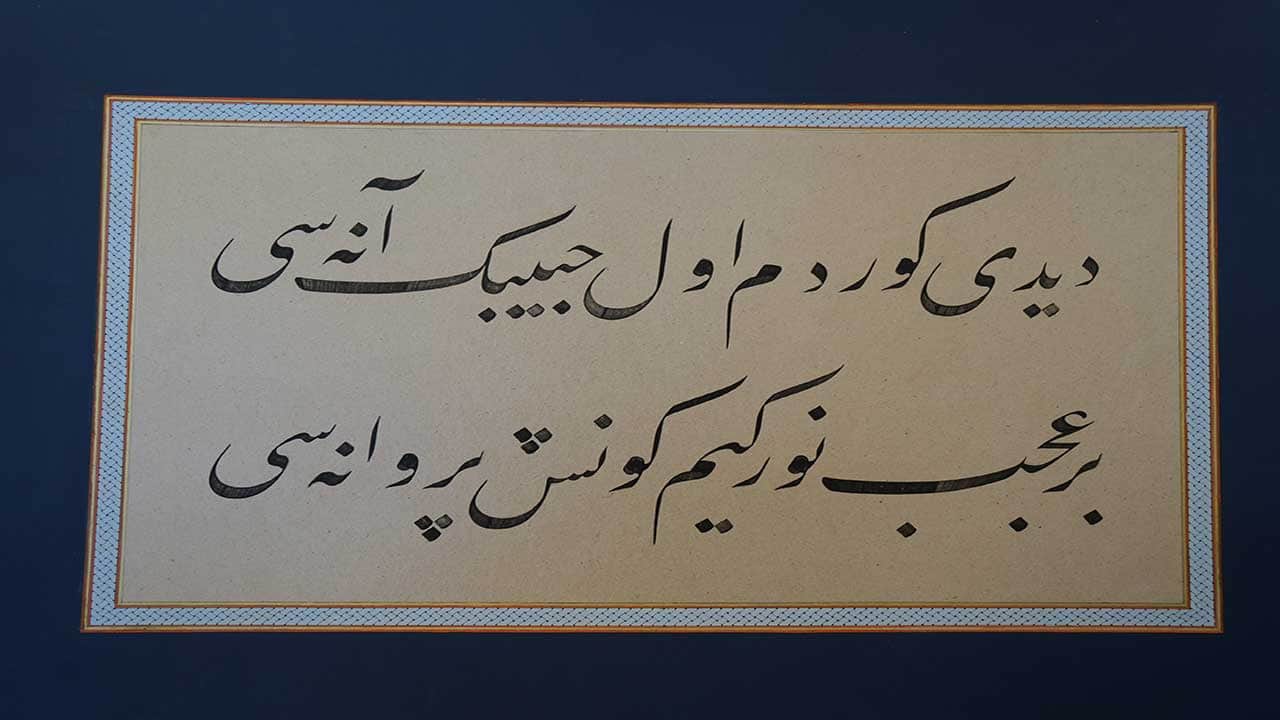 دیدی کوردم اول حبیبک آنه سی
بر عجب نور کیم کونش پروانه سی